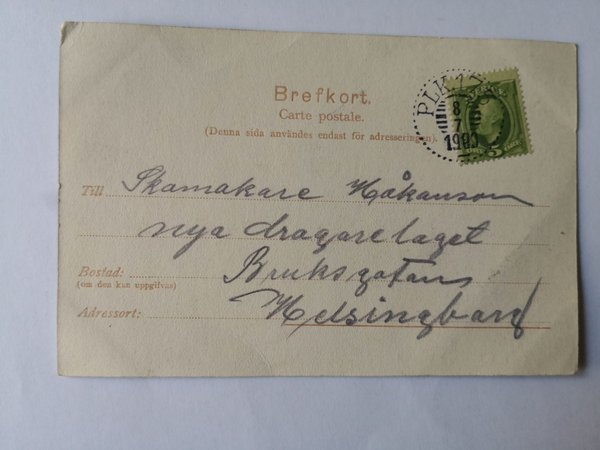 Brefkort.
Carte postale.
(Denna sida användes endast för adresseringen).
PLK
8
7
1903
5
Till Skamakare Håkanson
nya dragarelaget
Bostad: Bruksgatan
(om den kan uppgifvas)
Adressort: Helsingborg